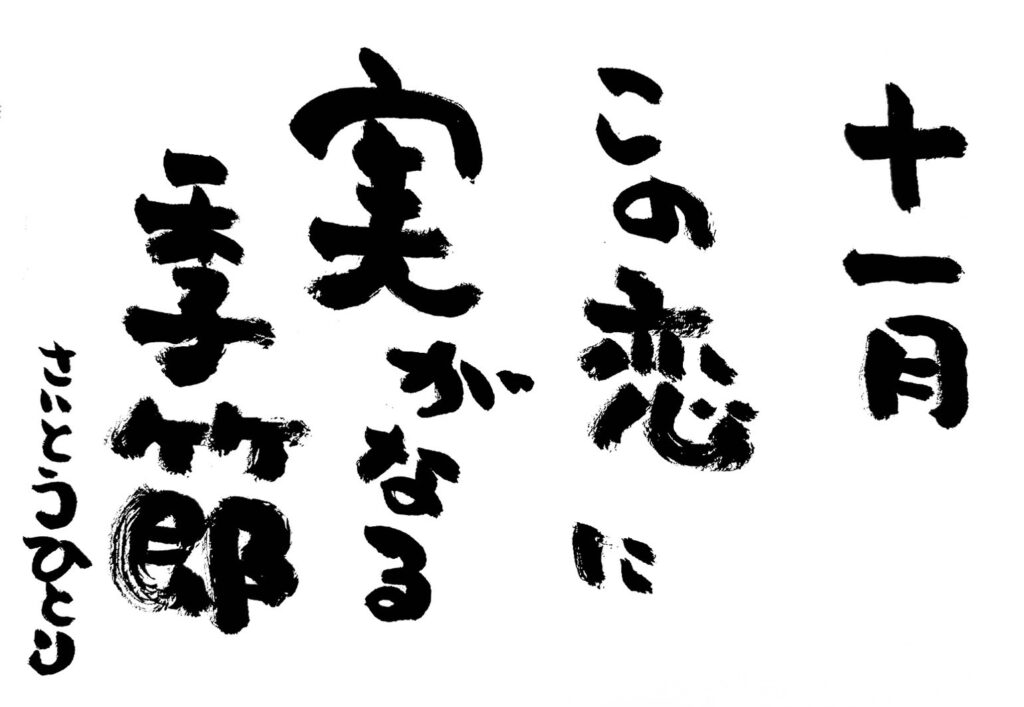 十一月
この恋に
実がなる
季節
さいとうひとり